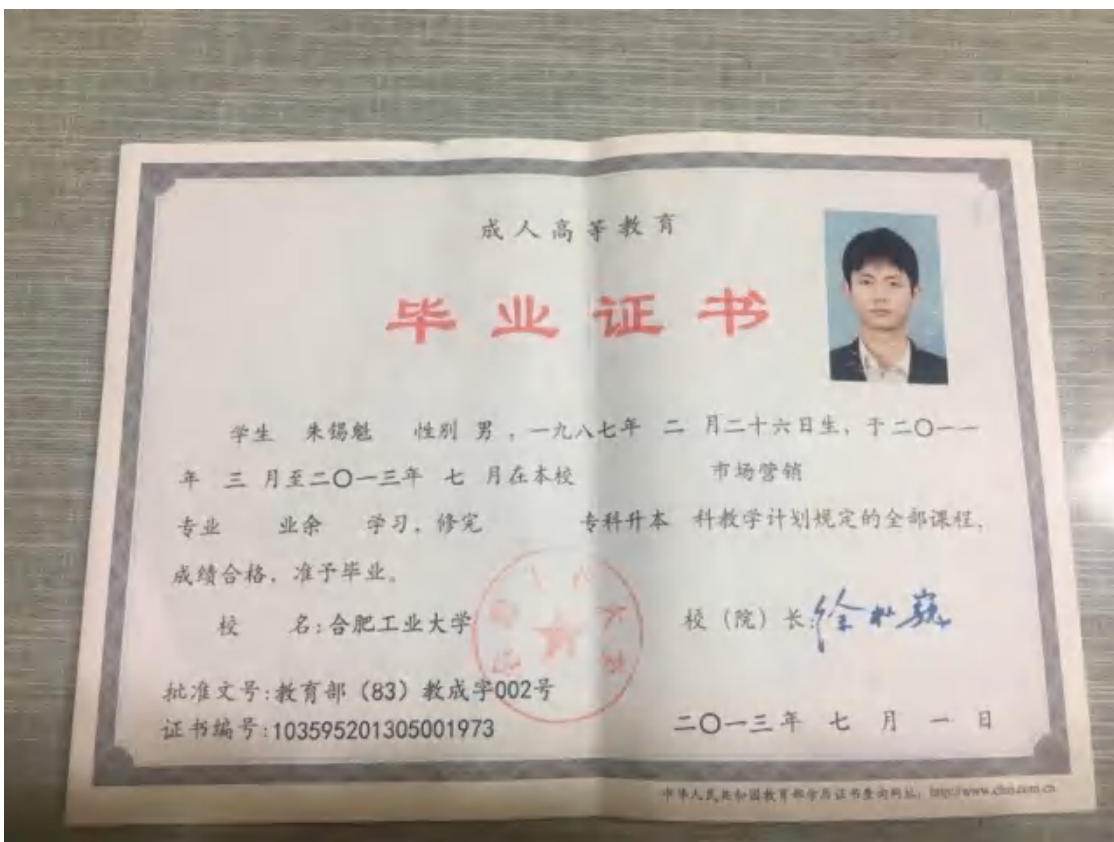 成人高等教育
毕业证书
学生 朱锡魁 性别 男，一九八七年 二 月二十六日生，于二〇一一
年 三 月至二〇一三年 七 月在本校 市场营销
专业 业余 学习，修完 专科升本 科教学计划规定的全部课程，
成绩合格，准予毕业。
校 名：合肥工业大学 校（院）长：
批准文号：教育部（83）教成字002号
证书编号：103595201305001973 二〇一三年 七 月 一 日
中华人民共和国教育部学历证书查询网址：http://www.chsi.com.cn